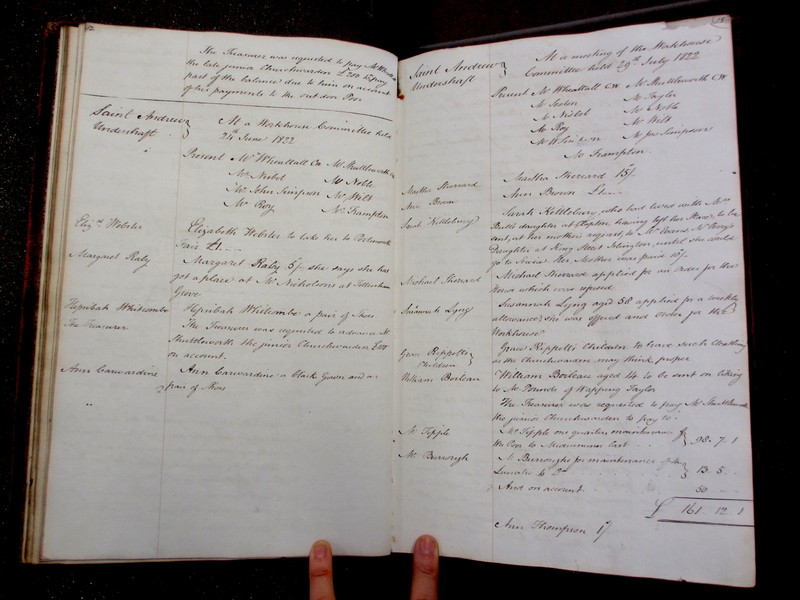 The Treasurer was requested to pay Mr Wheattall
the late junior Churchwarden £200 to pay
part of the balance due to him on account
of his payments to the out door Poor
Saint Andrew
Undershaft
At a Workhouse Committee held
24th June 1822
Present Mr Wheattall CW Mr Shuttleworth CW
Mr Nisbet Mr Noble
Mr John Simpson Mr Wilt
Mr Roy Mr Frampton
Elizth Webster
Elizabeth Webster to take her to Portsmouth
Fair £1
Margaret Raby
Margaret Raby 5/- she says she has
got a place at Mr Nicholsons at Tottenham
Grove
Hepzibah Whitcombe
Hepzibah Whitcombe a pair of Shoes
The Treasurer
The Treasurer was requested to advance Mr
Shuttleworth the junior Churchwarden £100
on account.
Ann Carwardine
Ann Carwardine a black Gown and a
pair of Shoes
Saint Andrew
Undershaft
At a meeting of the Workhouse
Committee held 29th July 1822
Present Mr Wheattall CW Mr Shuttleworth CW
Mr Taylor
Mr Nisbet Mr Noble
Mr Roy Mr Wilt
Mr Simpson Mr Jas Simpson
Mr Frampton
Martha Sherrard
Martha Sherrard 15/
Ann Brown
Ann Brown £1
Sarah Kettlebury
Sarah Kettlebury, who had lived with Mrs
daughter at Clapton having left her to be
sent, at her mothers request to
Daughter at King Street Islington, until she could
go to Service Her Mother was paid 10/
Michael Sherrard
Michael Sherrard applied for an Order for the
House which was refused
Susannah Lyng
Susannah Lyng aged 58 applied for a weekly
allowance, she was offered and order for the
Workhouse
Grace Rippetts
Children
Grace Rippetts Children to have such Clothing
as the Churchwarden may think proper
William Boileau
William Boileau aged 14 to be sent on liking
to Mr Pounds of Wapping Taylor
The Treasurer was requested to pay Mr Shuttleworth
the junior Churchwarden to pay to
Mr Tipple
Mr Tipple one quarters maintenance of
the Poor to Midsummer last 98. 7. 1
Mr Burrough
Mr Burroughs for maintenance of the
Lunatic to Do 13. 5.
And on account 50
£ 161. 12. 1
Ann Thompson 1/